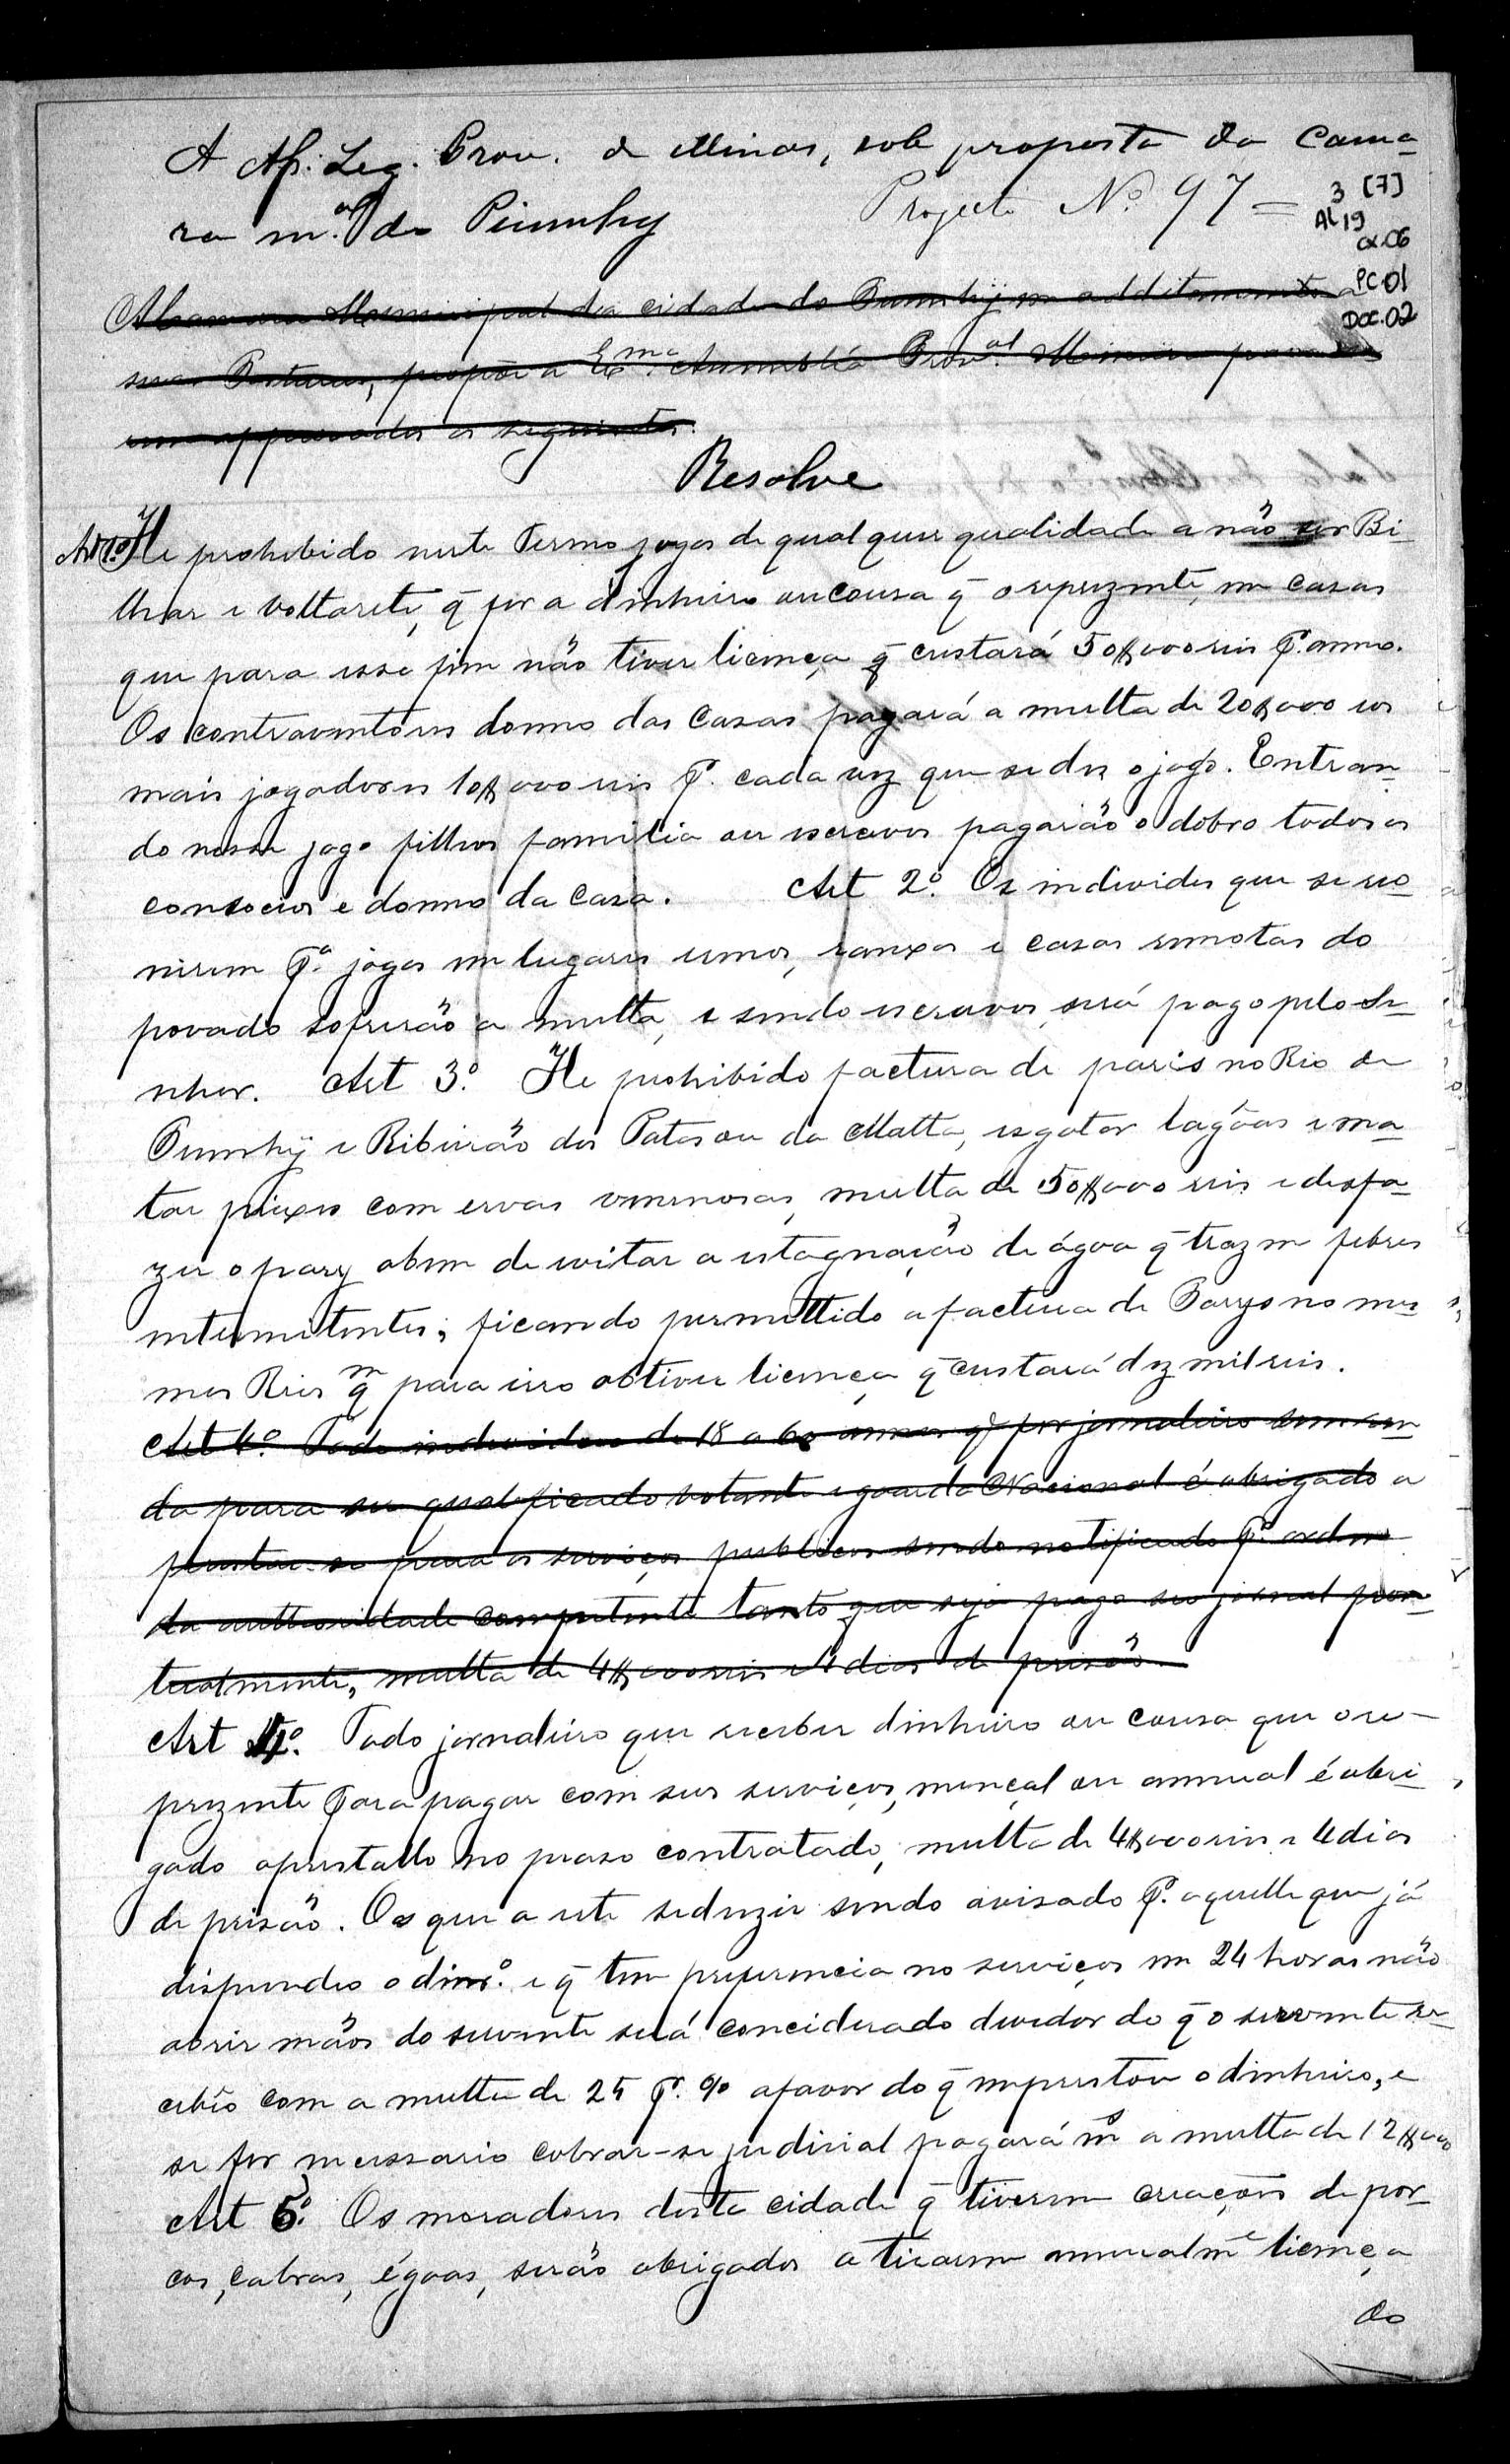 A Ass. Leg. Prov. de Minas, sob proposta da Cama-
ra m.al do Piumhy
Projecto Nº 97 =
3 [7]
AL 19
cx. 06
PC 01
DOC. 02
A Camara Municipal da cidade do Piumhÿ em additamento a
suas Posturas, propõe a Ex.ma Assembléa Prov.al Mineira para
em approvados os seguintes.
Resolve
Art 1.º He prohibido neste Termo jogos de qual quer qualidade a não ser Bi-
lhar e voltarete, q̃ for a dinheiro ou cousa q̃ o reprezente, em casas
que para esse fim não tiver licença q̃ custará 50$000 reis P. anno.
Os contraventores donno das casas pagará a multa de 20$000 e os
mais jogadores 10$000 reis P.r cada vez que se der o jogo. Entran-
do nesse jogo filhos familia ou escravos pagarão o dobro todos os
consocios e donno da casa. Art 2.º Os individos que se reo-
nirem P.a jogos em lugares ermos, ranxos e casas remotas do
povado sofrerão a multa, e sendo escravos, será pago pelo Se-
nhor. Art 3.º He prohibido factura de paris no Rio de
Piumhÿ e Ribeirão dos Patos ou da Matta, esgotar lagôas e ma-
tar peixes com ervas venenosas, multa de 50$000 reis e desfa-
zer o pary abem de evitar a estagnação de ágoa q̃ trazem febres
intermitentes; ficando permettido a factura de Parys no mes-
mos Rios q̃m para isso obtiver licença q̃ custará dez mil reis.
Art 4.º Todo individuo de 18 a 60 annos q̃ for jornaleiro sem ren-
da para ser qualificado votante e goarda Nacional é obrigado a
prestar-se para os serviços publicos sendo notificado P.r ordem
da authoridade competente tanto que seja pago seo jornal pon-
tualmente, multa de 4$000 reis e 4 dias de prisão.
Art 4º. Todo jornaleiro que receber dinheiro ou cousa que o re-
prezente para pagar com seus serviços, mençal ou annual é obri-
gado a prestallo no praso contratado, multa de 4$000 reis e 4 dias
de prisão. Os que a este seduzir sendo avisado P.r aquelle que já
dispendeo o dinr.º e q̃ tem preferencia no serviços em 24 horas não
abrir mãos do servente será conciderado devedor do q̃ o servente re-
cebêo com a multa de 25 P. % a favor do q̃ emprestou o dinheiro, e
se for necessario cobrar-se judicial pagará m.s a multa de 12$000
Art 5º. Os moradores desta cidade q̃ tiverem creaçoẽs de por-
cos, cabras, égoas, serão obrigados a tirarem annualm.e licença
do